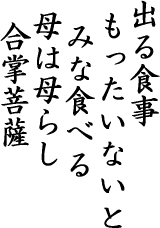 出る食事
もったいないと
みな食べる
母は母らし
合掌菩薩